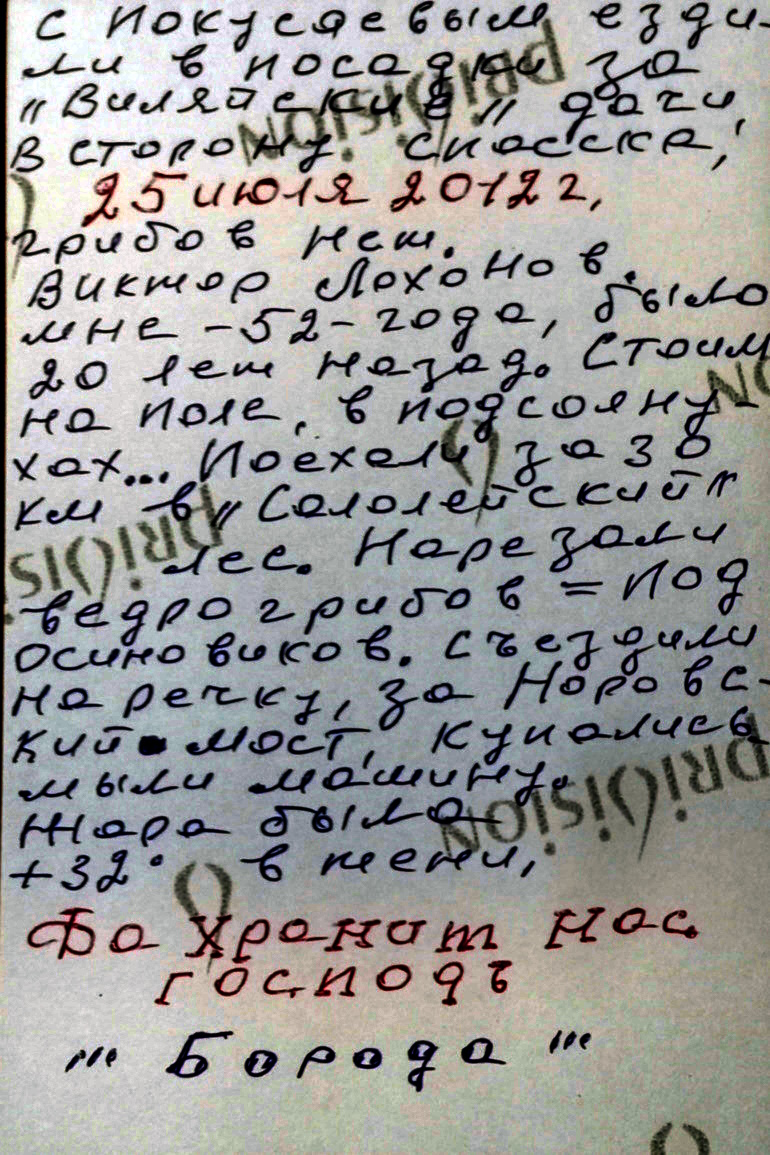 с Покусаевым езди-
ли в посадки за
"Виляйские" дачи
в сторону Спасска,
25 июля 2012 г,
грибов нет.
Виктор Лохонов.
мне -52- года, было
20 лет назад. Стоим
на поле, в подсолну-
хах... Поехали за 30
км в "Сололейский"
лес. Нарезали
ведро грибов = Под
осиновиков. Съездили
на речку, за Норовс-
кий мост, купались
мыли машину.
Жара была
+32° в тени,
Да хранит нас
Господь
"' Борода "'
DRI()ISION
DRI()ISION
DRI()ISION